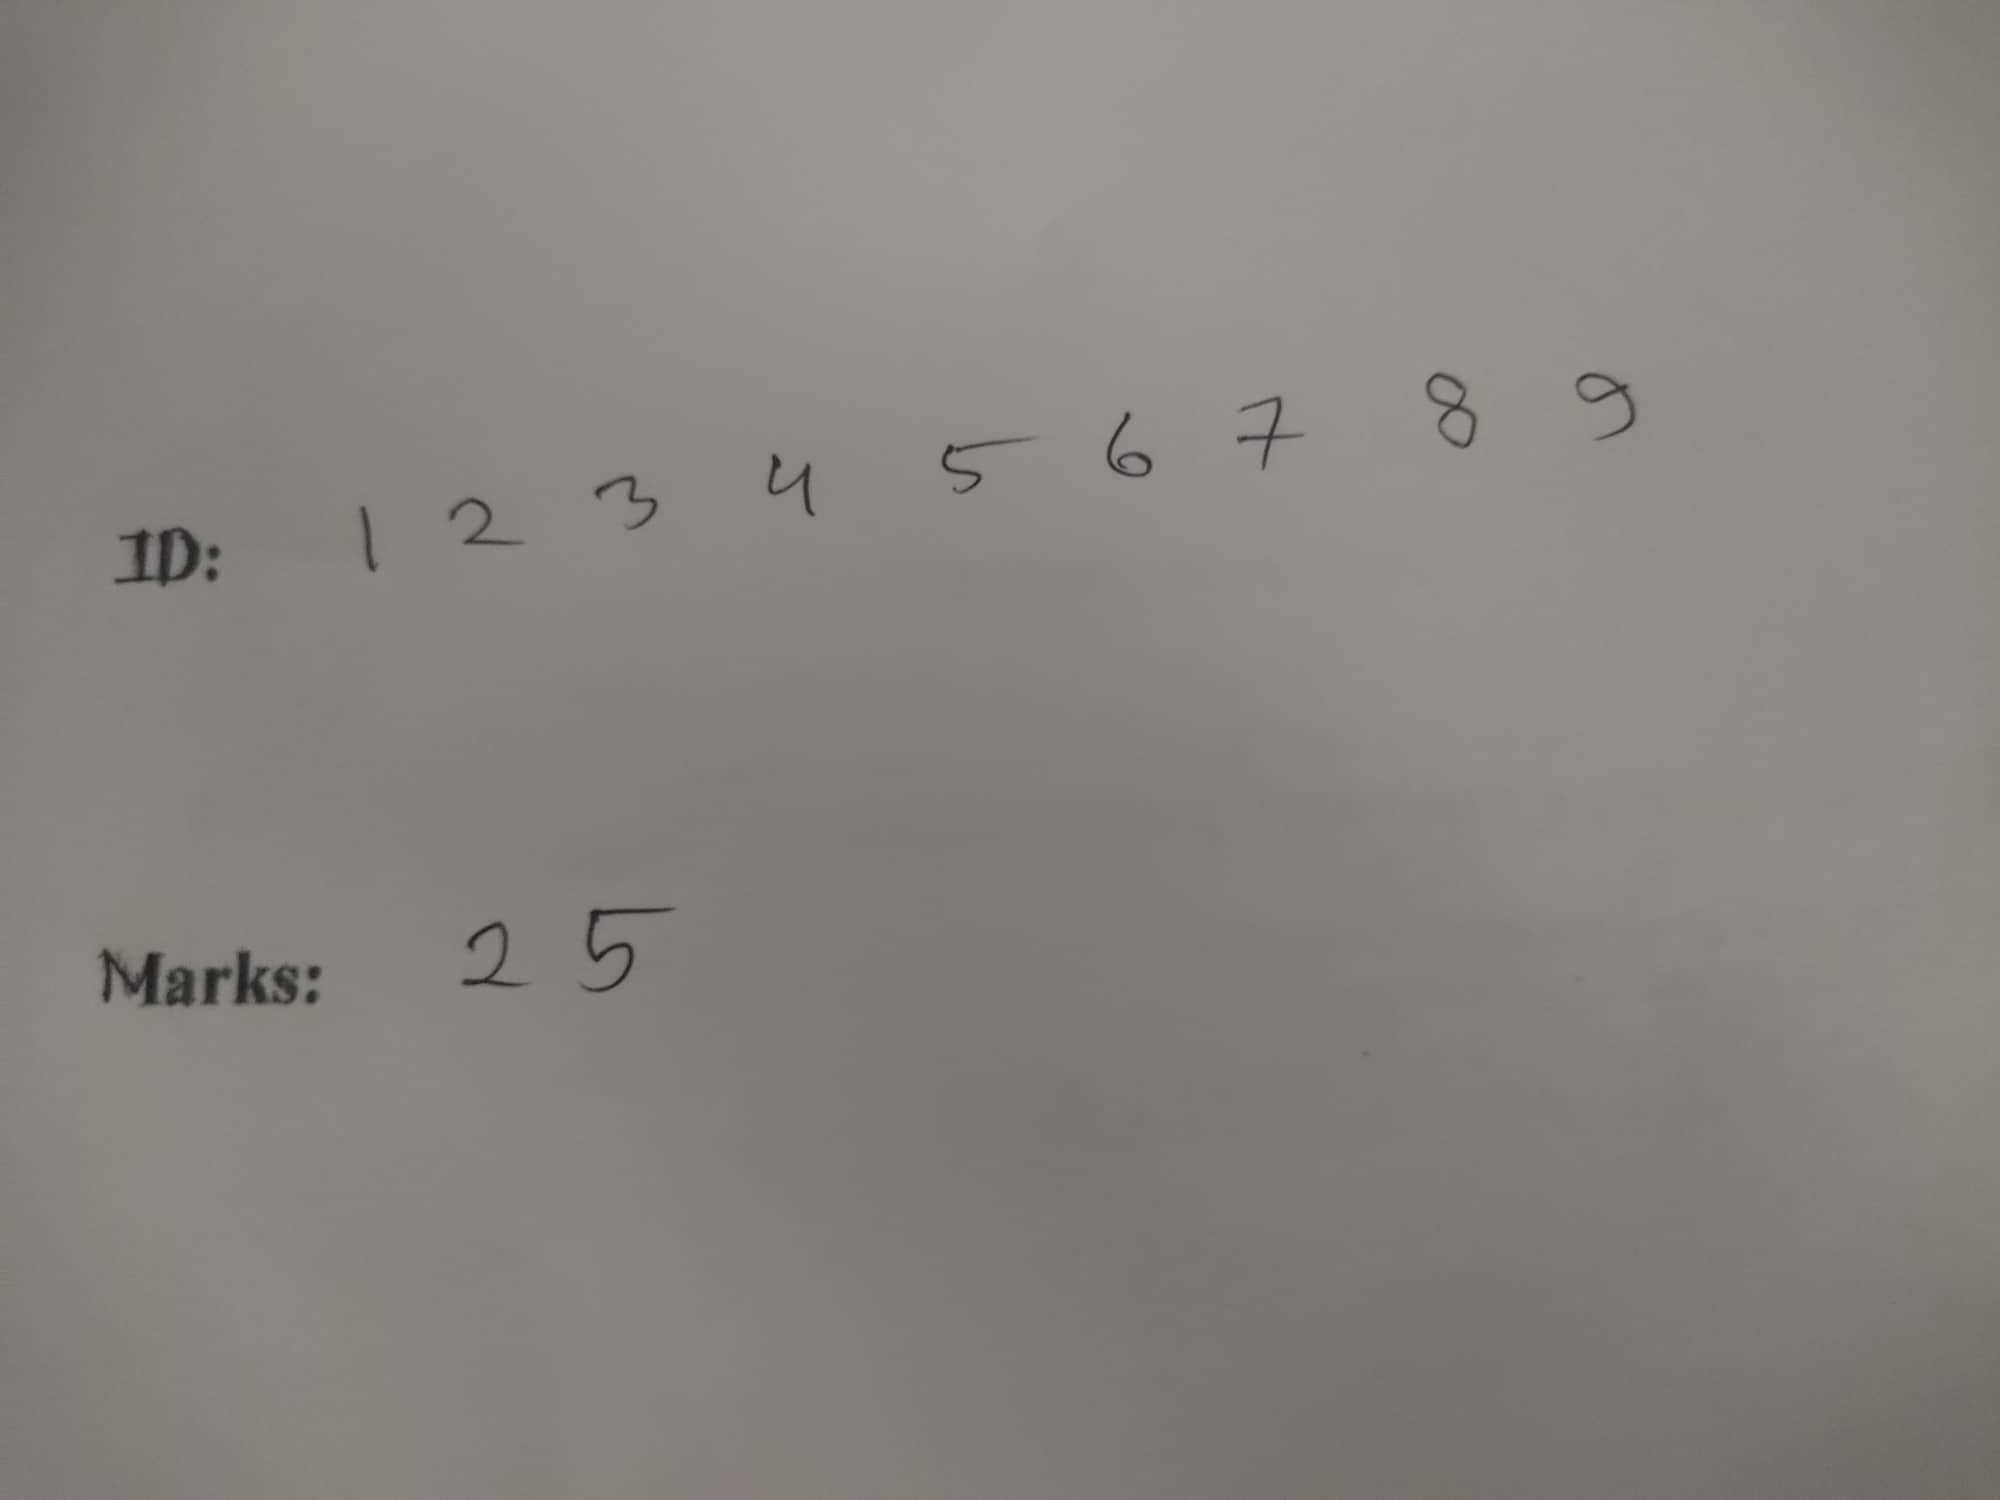 ID: 1 2 3 4 5 6 7 8 9
Marks: 25